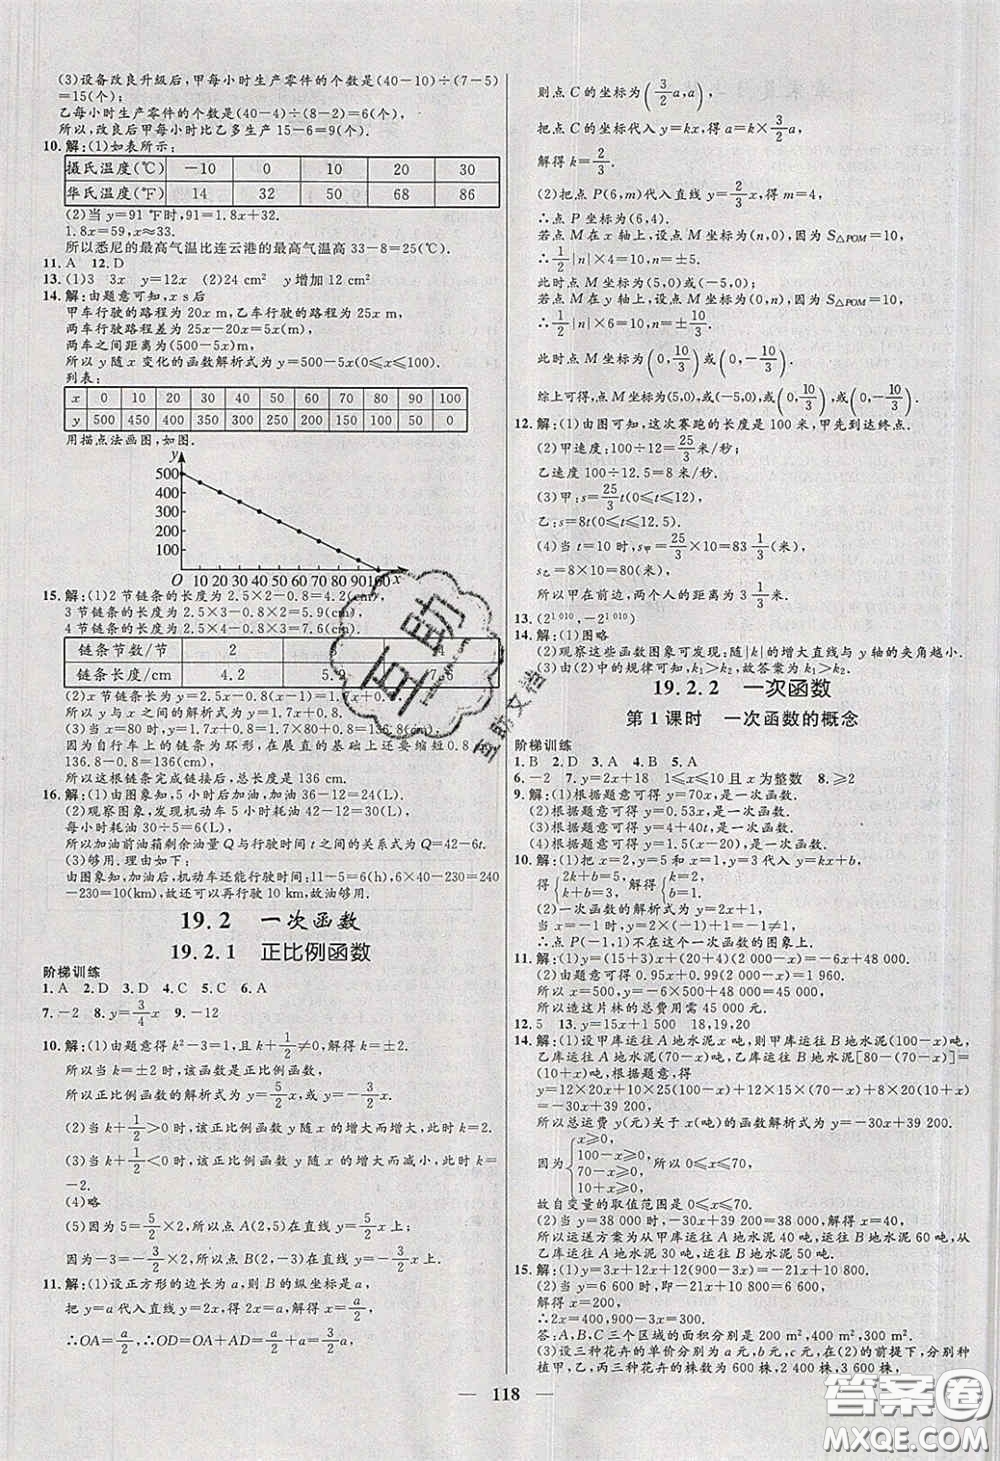 (3)设备改良升级后,甲每小时生产零件的个数是(40-10)÷(7-5)
=15(个);
乙每小时生产零件的个数是(40-4)÷(8-2)=6(个).
所以,改良后甲每小时比乙多生产 15-6=9(个).
10. 解:(1)如表所示:
摄氏温度(℃) -10 0 10 20 30
华氏温度(℉) 14 32 50 68 86
(2)当 y=91 ℉时,91=1.8x+32.
1.8x=59,x≈33.
所以悉尼的最高气温比连云港的最高气温高 33-8=25(℃).
11. A 12. D
13. (1)3 3x y=12x (2)24 cm² y增加12 cm²
14. 解:由题意可知,x s后
甲车行驶的路程为 20x m,乙车行驶的路程为 25x m.
两车行驶的路程差为 25x-20x=5x(m),
两车之间距离为(500-5x)m.
所以 y 随 x 变化的函数解析式为 y=500-5x(0≤x≤100).
列表:
x 0 10 20 30 40 50 60 70 80 90 100
y 500 450 400 350 300 250 200 150 100 50 0
用描点法画图,如图.
y
500
400
300
200
100
O 10 20 30 40 50 60 70 80 90 100 x
15. 解:(1)2 节链条的长度为 2.5×2-0.8=4.2(cm),
3 节链条的长度为 2.5×3-0.8×2=5.9(cm),
4 节链条的长度为 2.5×4-0.8×3=7.6(cm).
链条节数/节 2 4
链条长度/cm 4.2 5.9 7.6
(2)x 节链条的长度为 y=2.5x-0.8(x-1)=1.7x+0.8.
y 与 x 之间的关系式为 y=1.7x+0.8.
(3)当 x=80 时,y=1.7x+0.8=1.7×80+0.8=136.8(cm).
因为自行车上的链条为环形,在展直的基础上还要缩短 0.8 cm,
136.8-0.8=136(cm).
所以这根链条完成链接后,总长度是 136 cm.
16. 解:(1)由图象知,5 小时后加油,加油 36-12=24(L).
(2)观察图象,发现机动车 5 小时耗油 42-12=30(L).
每小时耗油 30÷5=6(L).
所以加油前油箱剩余油量 Q与行驶时间 t 之间的关系式为 Q=42-6t.
(3)够用. 理由如下:
由图象知,加油后,机动车还能行驶时间:11-5=6(h),6×40=240(km),240
-230=10(km),故还可以再行驶 10 km,故油够用.
19.2 一次函数
19.2.1 正比例函数
阶梯训练
1. A 2. D 3. D 4. C 5. C 6. A
7. -2 8. y=3/4x 9. -12
10. 解:(1)由题意得 k²-3=1,且 k+1/2≠0,解得 k=±2.
当 k=±2 时,该函数是正比例函数.
所以正比例函数的解析式为 y=5/2x 或 y=-3/2x.
(2)当 k+1/2>0 时,该正比例函数 y随 x的增大而增大,此时 k=2.
(3)当 k+1/2<0 时,该正比例函数 y 随 x 的增大而减小,此时 k=
-2.
(4)略
(5)因为 5=5/2×2,所以点 A(2,5)在直线 y=5/2x 上.
因为-3=-3/2×2,所以点 B(2,-3)在直线 y=-3/2x 上.
11. 解:(1)设正方形的边长为 a,则 B 的纵坐标是 a,
把 y=a 代入直线 y=2x,得 2x=a,解得 x=a/2,
∴OA=a/2,∴OD=OA+AD=a/2+a=3/2a,
则点 C 的坐标为(3/2a,a),
把点 C 的坐标代入 y=kx,得 a=k×3/2a,
解得 k=2/3.
(2)把点 P(6,m)代入直线 y=2/3x,得 m=4,
∴点 P 的坐标为(6,4).
若点 M 在 x 轴上,设点 M 坐标为(n,0),因为 S△POM=10,
∴1/2|n|×4=10,n=±5.
此时点 M 坐标为(5,0)或(-5,0);
若点 M 在 y 轴上,设点 M 坐标为(0,n),因为 S△POM=10,
∴1/2×|n|×6=10,n=±10/3,
此时点 M 坐标为(0,10/3)或(0,-10/3).
综上可得,点 M 坐标为(5,0),或(-5,0),或(0,10/3),或(0,-10/3).
12. 解:(1)由图可知,这次赛跑的长度是 100 米,甲先到达终点.
(2)甲速度:100÷12=25/3米/秒.
乙速度 100÷12.5=8 米/秒.
(3)甲:s=25/3t(0≤t≤12),
乙:s=8t(0≤t≤12.5).
(4)当 t=10 时,s甲=25/3×10=83 1/3(米),
s乙=8×10=80(米).
所以甲在前边,两个人的距离为 3 1/3米.
13. (2^1 010,-2^1 010)
14. 解:(1)图略
(2)观察这些函数图象可发现:随|k|的增大直线与 y轴的夹角越小.
(3)由(2)中的规律可知,k₁>k₂,故答案为 k₁>k₂.
19.2.2 一次函数
第 1 课时 一次函数的概念
阶梯训练
1. B 2. D 3. A 4. B 5. A
6. -2 7. y=2x+18 1≤x≤10 且 x 为整数 8. ≥2
9. 解:(1)根据题意可得 y=70x,是一次函数.
(2)根据题意可得 y=0.53x,是一次函数.
(3)根据题意可得 y=4+40t,是一次函数.
(4)根据题意可得 y=x²,不是一次函数.
10. 解:(1)把 x=2,y=5 和 x=1,y=3 代入 y=kx+b,
得{2k+b=5,k+b=3,解得{k=2,b=1.
(2)一次函数的解析式为 y=2x+1,
当 x=-1 时,y=-1.
∴点 P(-1,1)不在这个一次函数的图象上.
11. 解:(1)y=(15+3)x+(20+4)(2 000-x)=-6x+48 000.
(2)由题意可得,0.95x+0.99(2 000-x)=1 960,解得 x=500.
所以 x=500,y=-6×500+48 000=45 000.
所以造这片林的总费用需 45 000 元.
12. 5 13. y=15x+1 500 18,19,20
14. 解:(1)设甲库运往 A 地水泥 x 吨,则甲库运往 B 地水泥(100-x)吨,
乙库运往 A 地水泥(70-x)吨,乙库运往 B 地水泥[80-(70-x)]=
(10+x)吨.根据题意,得
y=12×20x+10×25(100-x)+12×15×(70-x)+8×20(10+x)
=-30x+39 200,
所以总运费 y(元)关于 x(吨)的函数解析式为 y=-30x+39 200.
因为{x≥0,
100-x≥0,
70-x≥0,
10+x≥0, 所以 0≤x≤70,
故自变量的取值范围是 0≤x≤70.
(2)当 y=38 000 时,-30x+39 200=38 000,解得 x=40.
所以运送方案为从甲库运往 A 地水泥 40 吨,运往 B 地水泥 60 吨,从
乙库运往 A 地水泥 30 吨,运往 B 地水泥 50 吨.
15. 解:(1)y=3x+12x+12(900-3x)=-21x+10 800.
(2)当 y=6 600 时,-21x+10 800=6 600,
解得 x=200,
∴2x=400,900-3x=300,
答:A,B,C 三个区域的面积分别是 200 m²,400 m²,300 m².
(3)设三种花卉的单价分别为 a 元,b 元,c 元,在(2)的前提下,分别
种植甲,乙,丙三种花卉的株数为 600 株,2 400 株,3 600 株,
118
互助文档
答案圈
MXQE.COM